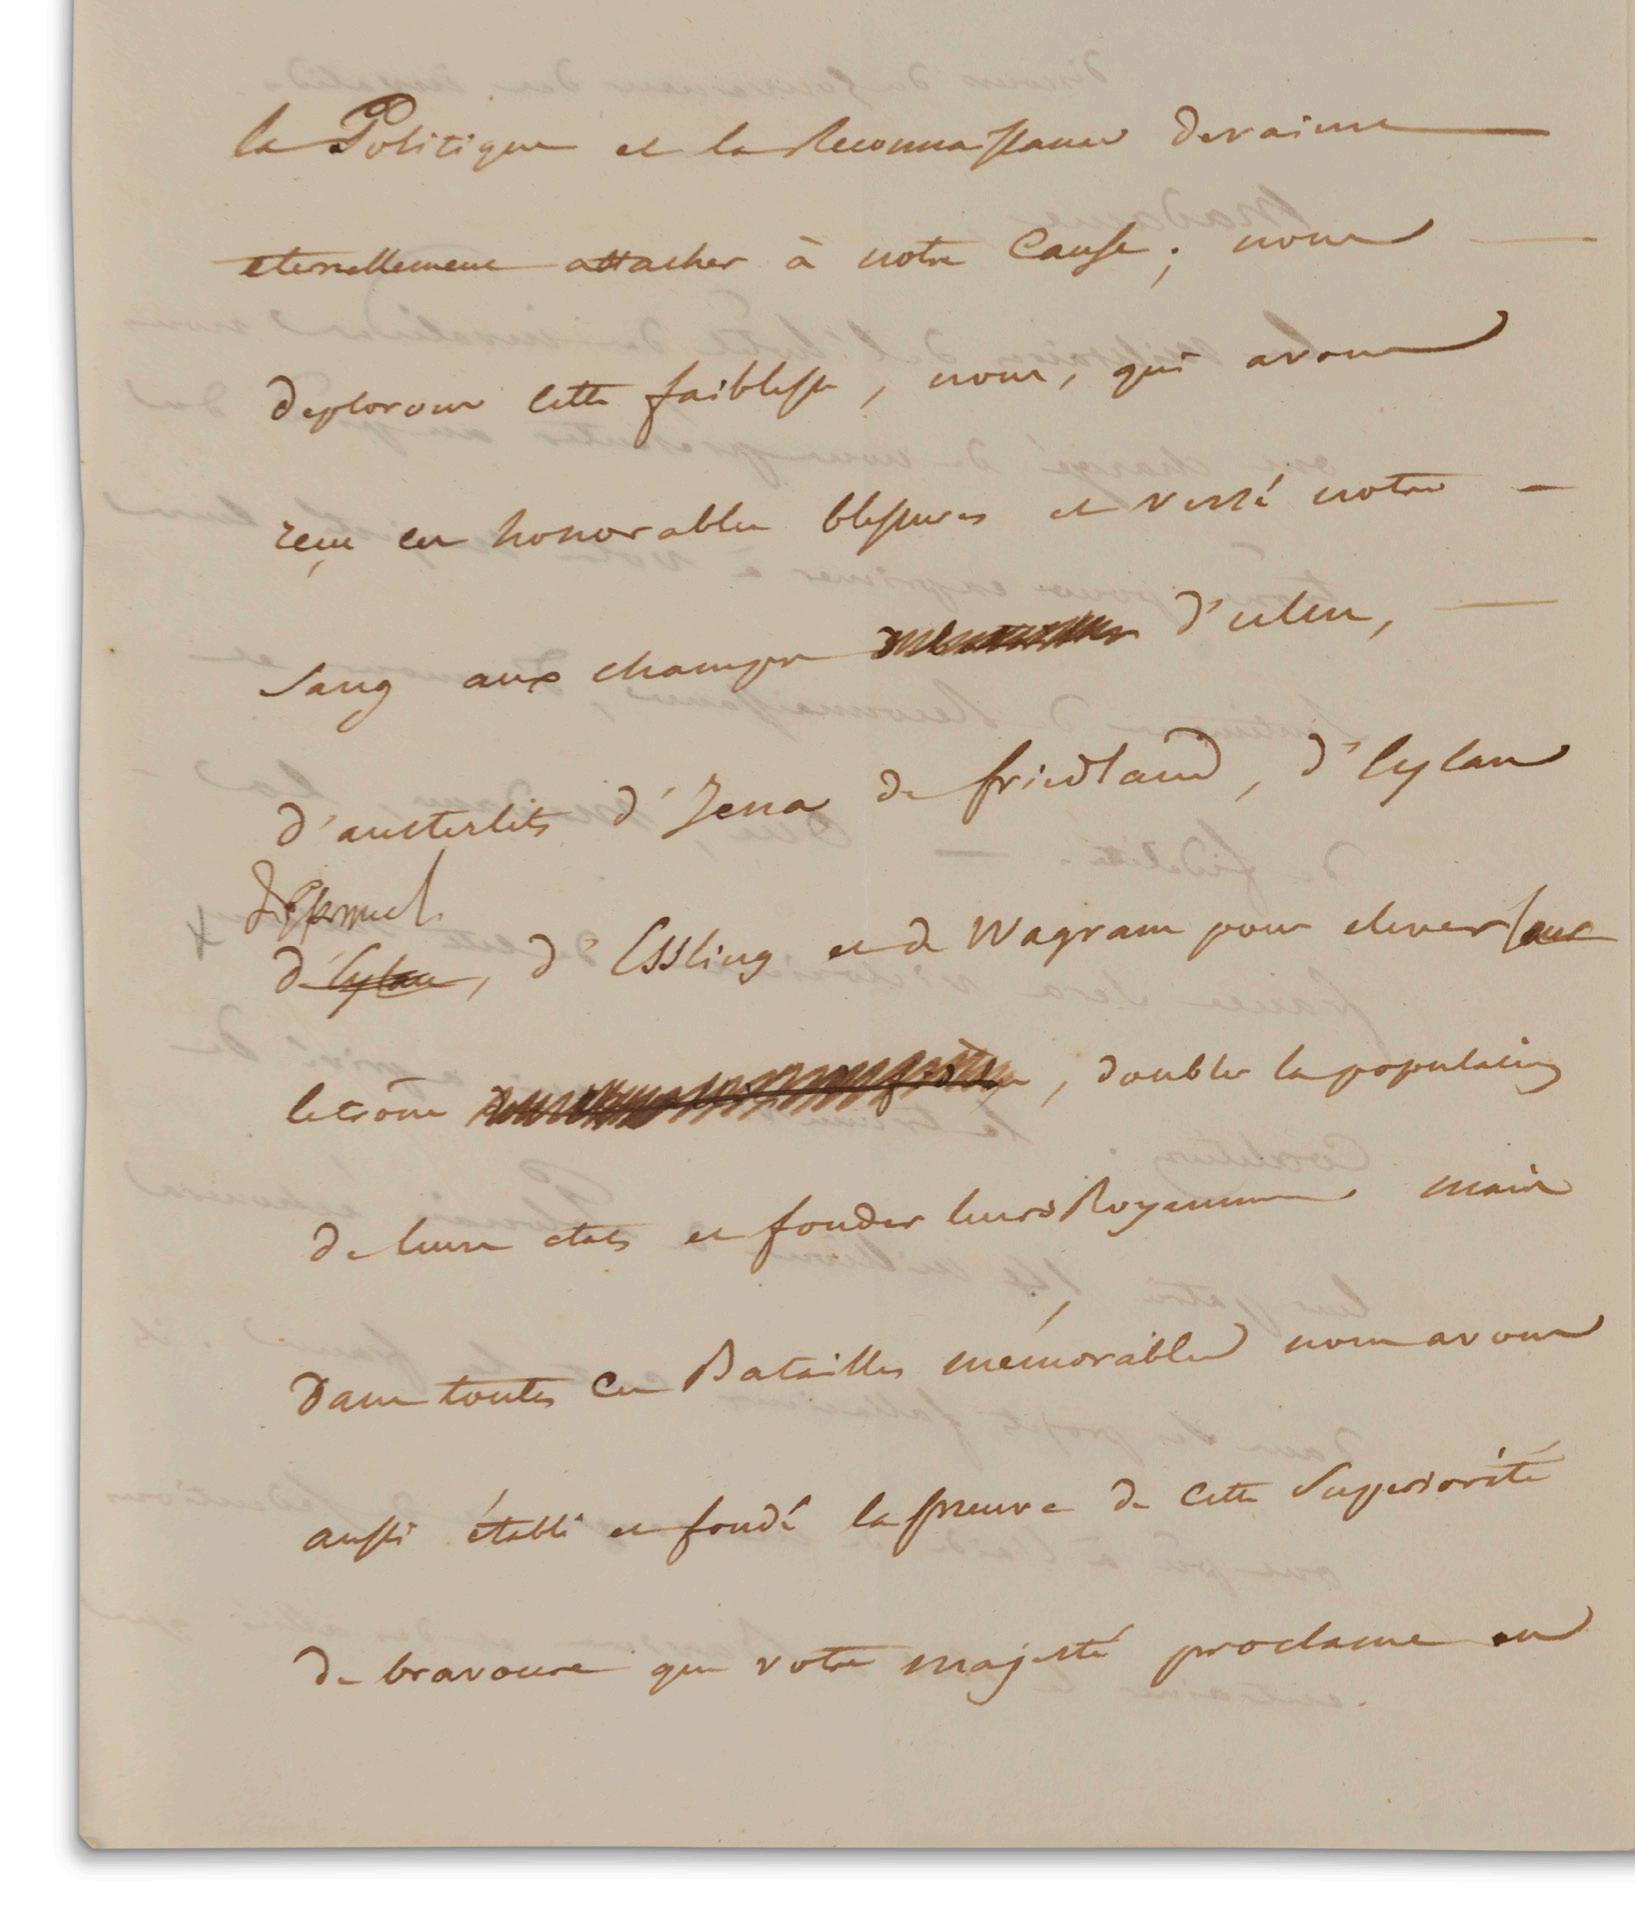 la Politique et la Reconnaissance devaient
eternellement attacher à notre Cause ; nous
deplorons cette faiblesse, nous, qui avons
reçu ces honorables blessures et versé notre
sang aux champs d'ulm,
d'austerlits d'Jena de friedland, d'Eylau
d'Eylau, d'Essling et de Wagram pour elever
le trône, doubler la population
de leurs etats et fonder leurs Royaumes. mais
Dans toutes Ces Batailles mémorables nous avons
aussi établi et fondé la preuve de cette Superiorité
de bravoure que votre majesté proclame en